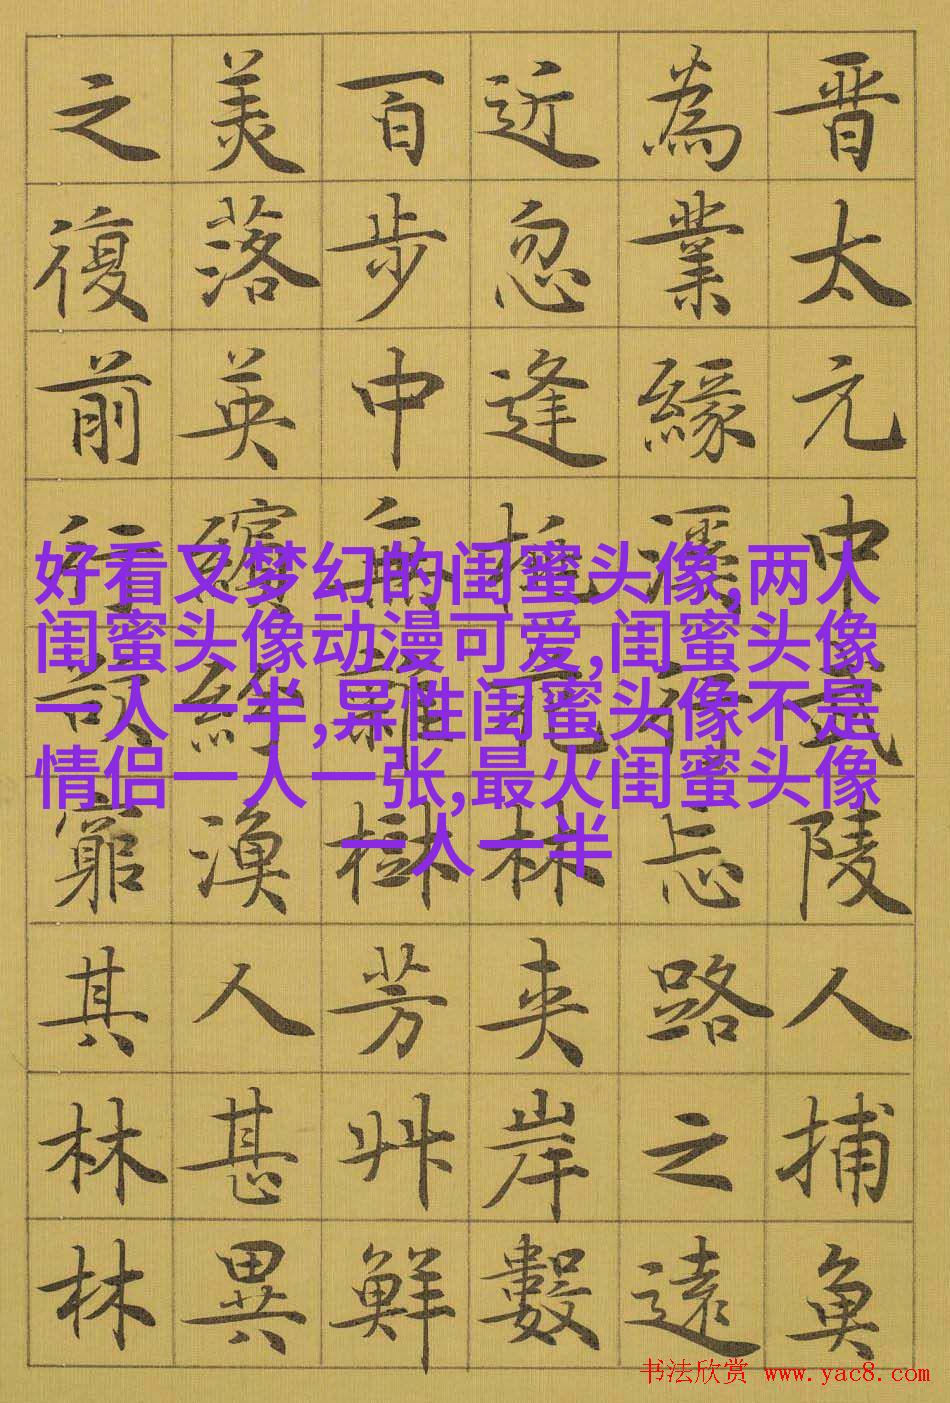 晋太元中武陵人捕魚
為業緣溪行忘路之遠
近忽逢桃花林夾岸數
百步中無雜樹芳艸鮮
美落英繽紛漁人甚異
之復前行欲窮其林林
好看又梦幻的闺蜜头像,两人
闺蜜头像动漫可爱,闺蜜头像
一人一半,异性闺蜜头像不是
情侣一人一张,最火闺蜜头像
一人一半
书法欣赏 www.yac8.com